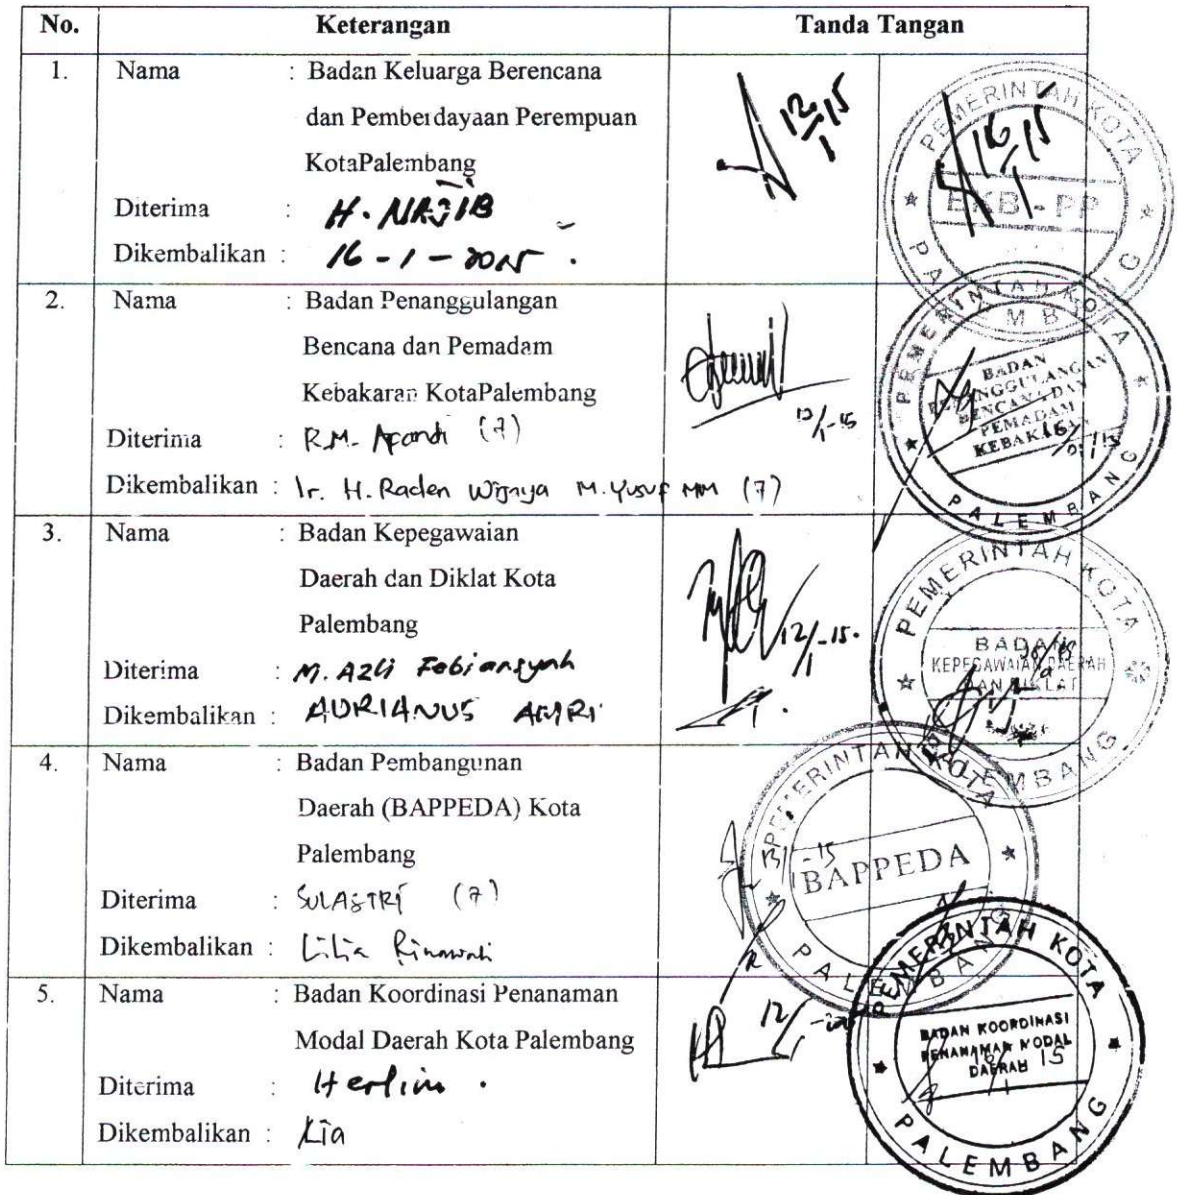 No. Keterangan Tanda Tangan
1. Nama : Badan Keluarga Berencana
dan Pemberdayaan Perempuan
KotaPalembang
Diterima : H. NAJIB
Dikembalikan : 16 - 1 - 2015 .
12/1 15
16/1 15
PEMERINTAH KOTA
BKB - PP
PALEMBANG
2. Nama : Badan Penanggulangan
Bencana dan Pemadam
Kebakaran KotaPalembang
Diterima : R.M. Apandi (7)
Dikembalikan : Ir. H. Raden Wijaya M. Yusuf MM (7)
12/1-15
PEMERINTAH KOTA
BADAN
PENANGGULANGAN
BENCANA DAN
PEMADAM
KEBAKARAN
PALEMBANG
3. Nama : Badan Kepegawaian
Daerah dan Diklat Kota
Palembang
Diterima : M. Azli Febiansyah
Dikembalikan : ADRIANUS AMRI
12/1-15.
PEMERINTAH KOTA
BADAN
KEPEGAWAIAN DAERAH
DAN DIKLAT
PALEMBANG
4. Nama : Badan Pembangunan
Daerah (BAPPEDA) Kota
Palembang
Diterima : SULASTRI (7)
Dikembalikan : Lilia Rinawati
PEMERINTAH KOTA
BAPPEDA
PALEMBANG
5. Nama : Badan Koordinasi Penanaman
Modal Daerah Kota Palembang
Diterima : Herlin .
Dikembalikan : Kia
PEMERINTAH KOTA
BADAN KOORDINASI
PENANAMAN MODAL
DAERAH
PALEMBANG